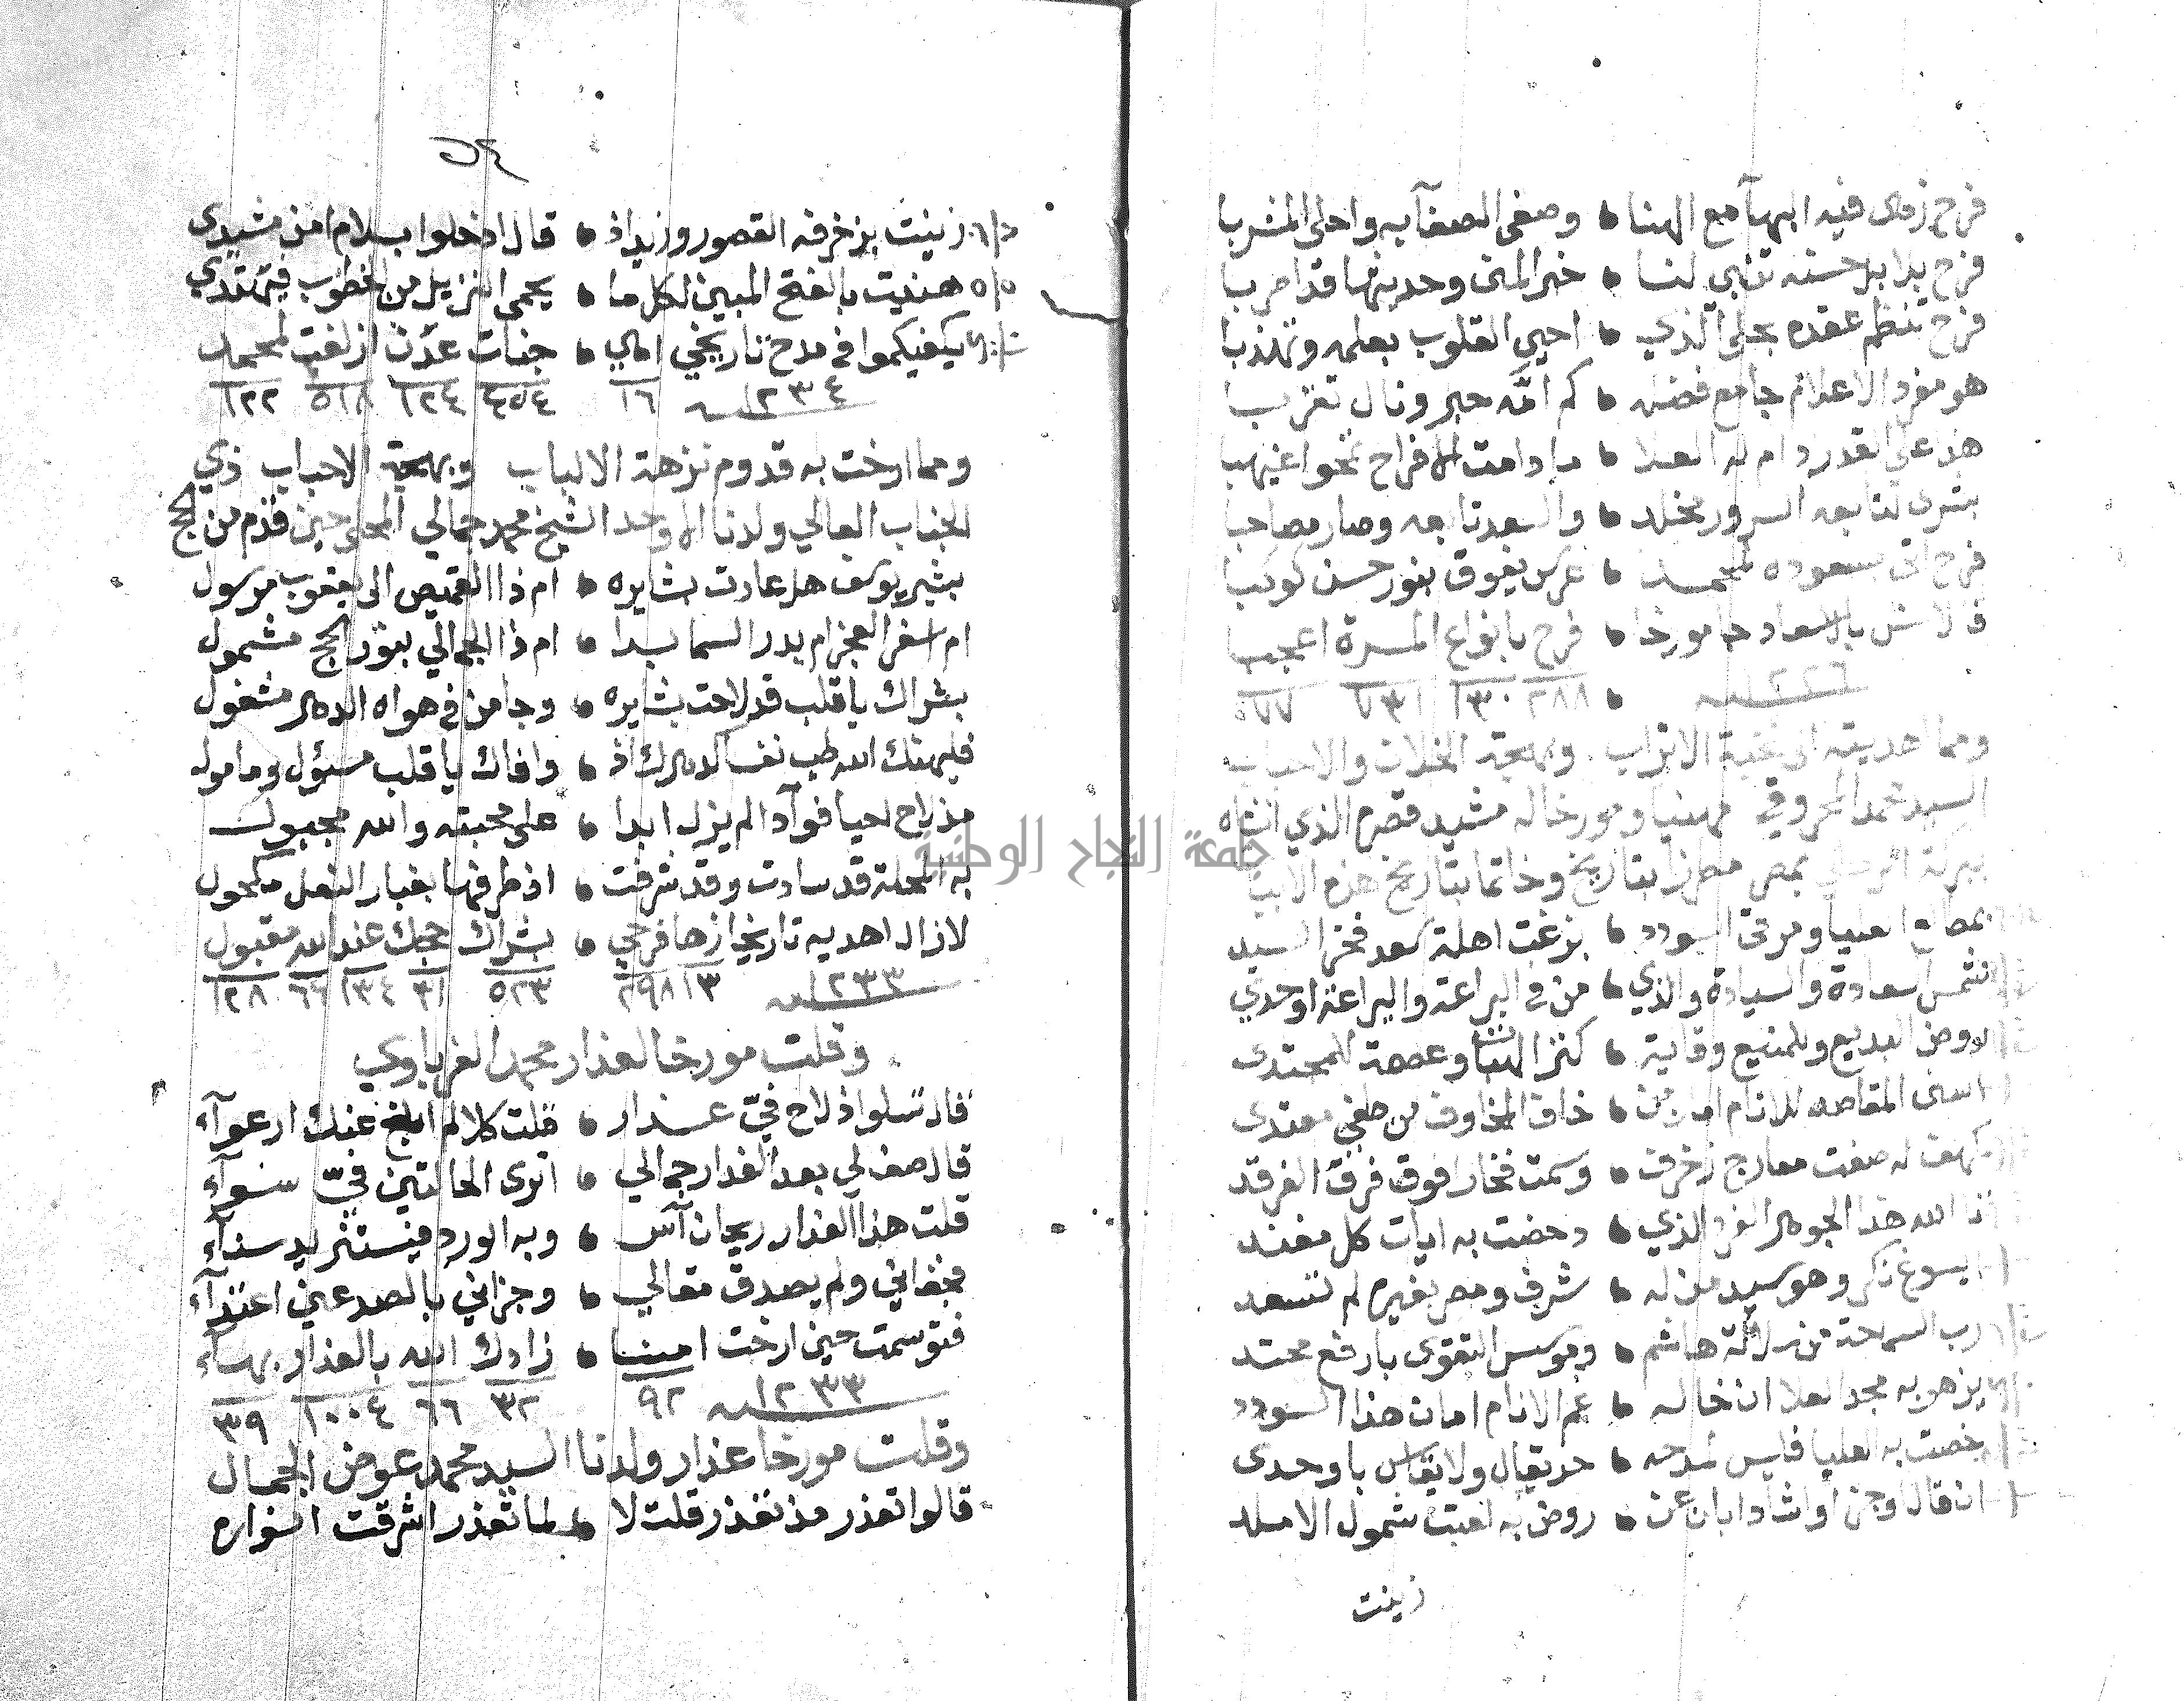 فرح زهى فيه البهآ مع الهنا • وصفى الصفآ به واحلى المشربا
فرح بدا بدر حسنه تنبي لنا • خبر المنى وحديثها قد اعربا
فرح تنظم عقده بحلى الذي • احيي القلوب بعلمه وتهذبا
هو مفرد الاعلام جامع فضله • كم امّه حبر ونال تقربا
هذ على القدر دام له العلا • ما دامت الافراح تمحوا غيهبا
بشرى لنا بعه السرور مخلد • والسعد تابعه وصار مصاحبا
فرح اتى بسعوده لمحمد • عرس يفوق بنور حسن كوكبا
بالاسعاد جا مورخا • فرح بانواع المسرة اعجبا
١٢٢٦ • ٢٨٨ ١٣٠ ٧٣١ ٧٧
ومما هديته الى نخبة الاتراب وبهجة الخلان والاحباب
السيد محمد المحروقي مهنيا ومورخا له مشيد قصره الذي انشاه
ببركة بمصر مطرزا بتاريخ وخاتما بتاريخ هذه الابيات
العليا ومرقى السودد • بزغت اهلة سعد فخر السيد
شمس سعادة والسيادة والذي • من في البراعة والبراعة اوحدي
الروض البديع وللمنيع وقاية • كنز الهنا وعصمة للمجتدى
اسنى المقاصد للانام امان من • خاف المخاوف من طغى معتدى
كهف له صفت معارج زخرفت • وسمت فخارا فوق فرق الفرقد
الله هذا الجوهر الفرد الذي • دحضت به ايات كل مفند
ايسوغ نكر وهو سيد من له • شرف ومصر بغيره لم تسعد
رب السماحة من سلالة هاشم • ومؤسس التقوى بارفع محتد
يزهو به مجد العلا ان خاله • عم الانام امان هذا السودد
خصت به العليا فليس لمدحه • حد يقال ولا يقاس باوحدى
ان قال اوجز او شدا ابان عن • روض به لعبت شمول الاملد
زينت
٥٢
زينت بزخرفه القصور وزيد اذ • قال ادخلوا بسلام امن مشيدى
هنيت بالفتح المبين لكل ما • يحمى النزيل من الخطوب فيهتدي
يكفيكموا في مدح تاريخي امالي • جنات عدن ازلفت لمحمد
١٢٣٤ ١٦ ٤٥٤ ١٢٤ ٥١٨ ١٢٢
ومما ارخت به قدوم نزهة الالباب وبهجة الاحباب ذي
الجناب العالي ولدنا الاوحد الشيخ محمد جمالي المحلى حين قدم من الحج
بشير يوسف هل عادت بشايره • ام ذا القميص الى يعقوب مرسول
ام اسفر العجز ام بدر السما بدا • ام ذا الجمالي بنور الحج مشمول
بشراك يا قلب قد لاحت بشايره • وجا من في هواه الدهر مشغول
فليهنك الله طب نفسا لدهرك اذ • وافاك يا قلب مسؤل ومامول
مذ لاح احيا فوآدا لم يزل ابدا • على محبته والله مجبول
به المحلة قد سادت وقد شرفت • اذ طرفها بغبار النعل مكحول
لا زال اهديه تاريخا زها فرحي • بشراك حجك عند الله مقبول
١٢٣٣ ١٣ ٢٩٨ ٥٢٣ ٣١ ١٣٤ ٦٦ ١٢٨
وقلت مورخا لعذار محمد الغرباوي
قال تسلوا اذ لاح فيّ عذار • قلت كلا لم ابلغ عنك ارعوآء
قال صف لي بعد العذار جمالي • اترى الحالتين فيّ سوآء
قلت هذا العذار ريحان آس • وبه الورد فيستزيد سنآء
فجفاني ولم يصدق مقالي • وجزاني بالصد عني اعتدآء
فتوسمت حين ارخت امنا • زادك الله بالعذار بهاء
١٢٣٣ ٩٢ ٣٢ ٦٦ ١٠٠٤ ٣٩
وقلت مورخا عذار ولدنا السيد محمد عوض الجمال
قالوا تعذر مذ تعذر قلت لا • لما تعذر اشرقت انواره
جامعة النجاح الوطنية